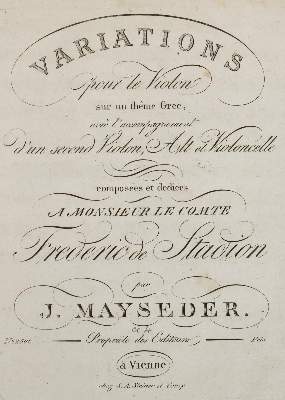 VARIATIONS
pour le Violon
sur un thême Grec,
avec l'accompagnement
d'un second Violon, Alt et Violoncelle
composées et dediées
A MONSIEUR LE COMTE
Frederic de Stadion
par
J. MAYSEDER.
Propriété des Editeurs
à Vienne
chez S. A. Steiner et Comp.